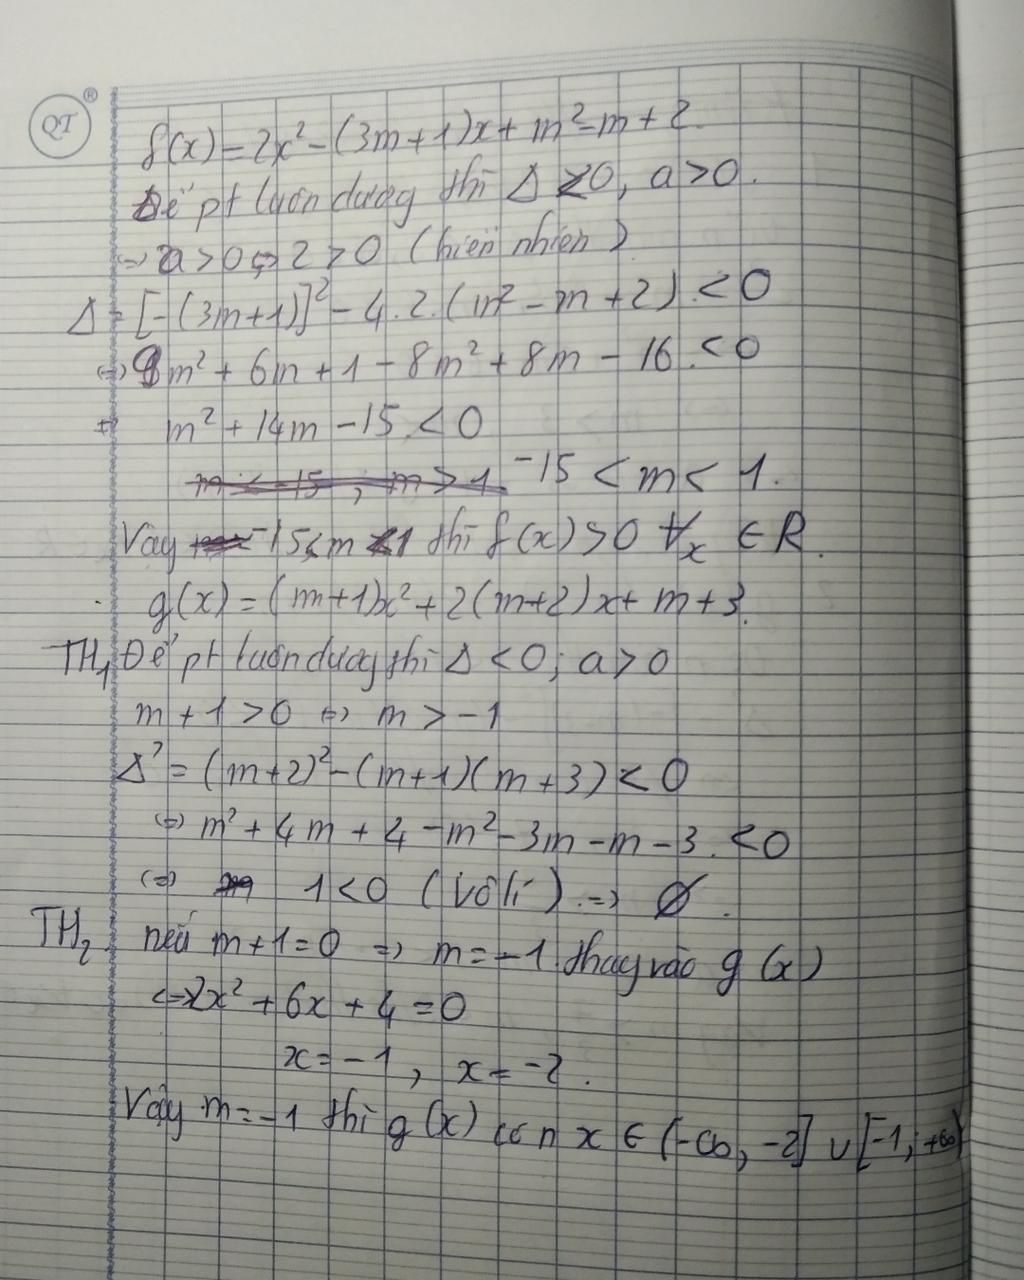 QT ®
f(x) = 2x² - (3m+1)x + m² - m + 2
Để pt luôn dương thì Δ < 0, a > 0.
=> a > 0 <=> 2 > 0 (hiển nhiên)
Δ = [-(3m+1)]² - 4.2.(m² - m + 2) < 0
<=> 9m² + 6m + 1 - 8m² + 8m - 16 < 0
<=> m² + 14m - 15 < 0
m < -15 ; m > 1 -15 < m < 1.
Vậy -15 < m < 1 thì f(x) > 0 ∀x ∈ R.
g(x) = (m+1)x² + 2(m+2)x + m + 3.
TH1 Để pt luôn dương thì Δ < 0; a > 0
m + 1 > 0 <=> m > -1
Δ' = (m+2)² - (m+1)(m+3) < 0
<=> m² + 4m + 4 - m² - 3m - m - 3 < 0
<=> 1 < 0 (vô lí) => ∅.
TH2 nếu m+1 = 0 => m = -1 thay vào g(x)
<=> 2x² + 6x + 4 = 0
x = -1, x = -2.
Vậy m = -1 thì g(x) có n x ∈ (-∞, -2] ∪ [-1; +∞)